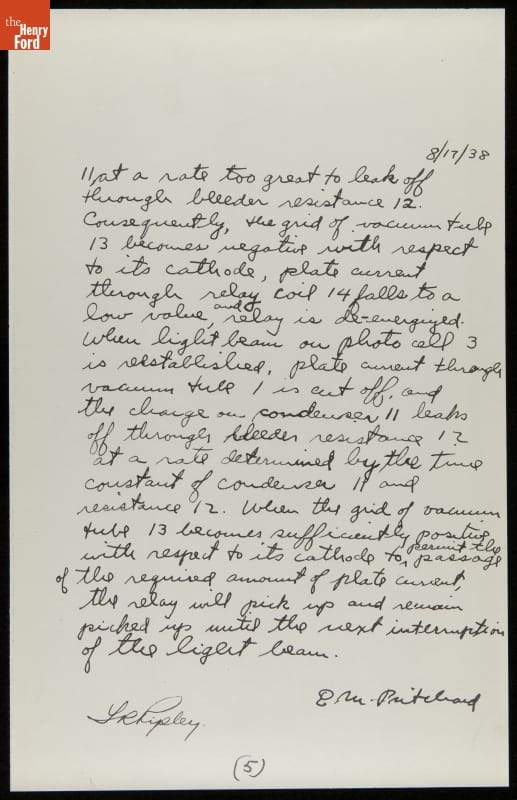 the
Henry
Ford
8/17/38
11, at a rate too great to leak off
through bleeder resistance 12.
Consequently, the grid of vacuum tube
13 becomes negative with respect
to its cathode, plate current
through relay coil 14 falls to a
low value, and relay is de-energized.
When light beam on photo cell 3
is reestablished, plate current through
vacuum tube 1 is cut off, and
the charge on condenser 11 leaks
off through bleeder resistance 12
at a rate determined by the time
constant of condenser 11 and
resistance 12. When the grid of vacuum
tube 13 becomes sufficiently positive
with respect to its cathode to permit the passage
of the required amount of plate current,
the relay will pick up and remain
picked up until the next interruption
of the light beam.
E. M. Pritchard
L R Ripley.
(5)